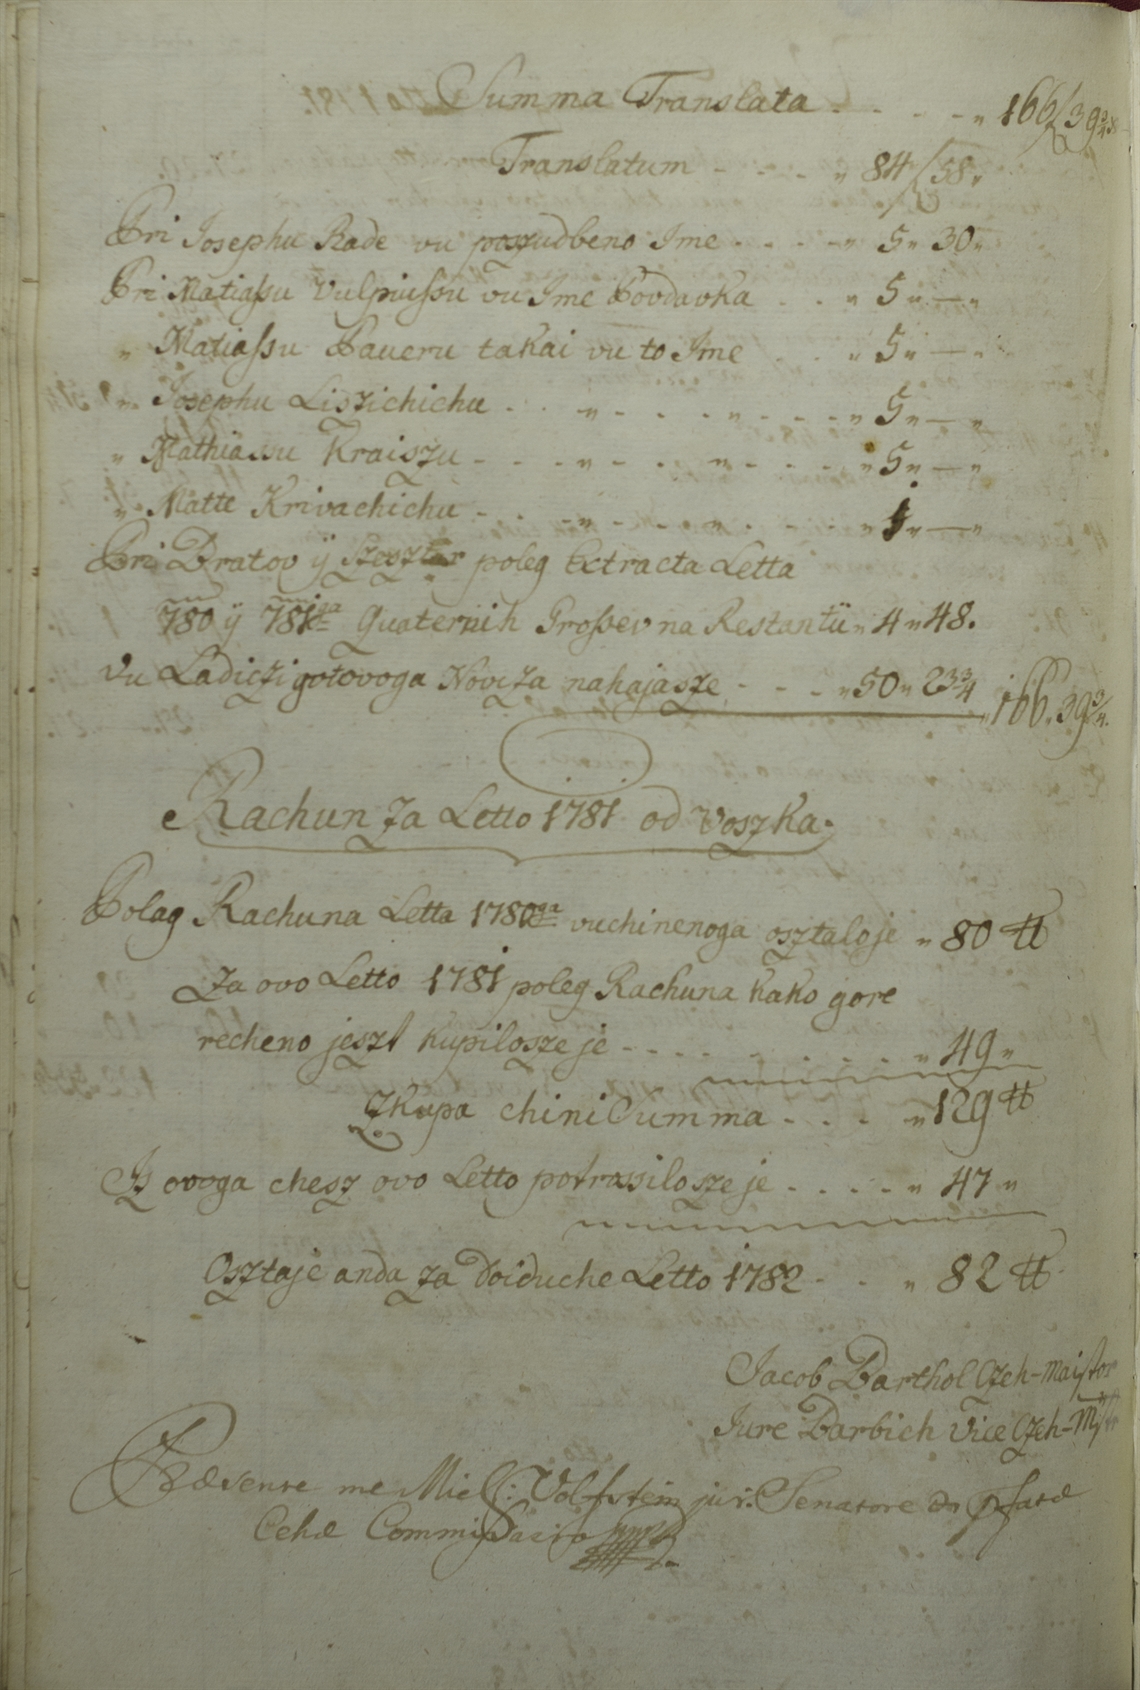 Summa Translata - - - - „ 166 / 39 3/4
Translatum - - - - „ 84 / 58 „
Pri Josephu Rade vu poszudbeno Ime - - - - „ 5 „ 30 „
Pri Matiassu Vulpiussu vu Ime Povdavka - - „ 5 „ — „
„ Matiassu Paueru takai vu to Ime - - „ 5 „ — „
„ Josephu Liszichichu - - „ - - - „ - - - „ 5 „ — „
„ Mathiassu Kraiszu - - - „ - - „ - - - „ 5 „ — „
„ Matte Krivachichu - - - „ - - - „ - - - „ — „
Pri Bratov ÿ Szesztar poleg Extracta Letta
780 ÿ 781ga Quaternih Grossev na Restantii „ 4 „ 48.
Vu Ladiczi gotovoga Novcza nahajasze - - - - „ 50 „ 23 3/4 „ 166. 39 3/4.
Rachun za Letto 1781 od Voszka.
Polag Rachuna Letta 1780ga vuchinenoga osztaloje „ 80 ℔
Za ovo Letto 1781 poleg Rachuna kako gore
recheno jeszt kupilosze je - - - - - - - - - „ 49 „
Zkupa chini Summa - - - - „ 129 ℔
Iz ovoga chesz ovo Letto potrassilosze je - - - - „ 47 „
Osztaje anda za doiduche Letto 1782 - - „ 82 ℔
Jacob Barthol Czeh-Maistor
Jure Barbich Vice Czeh-
Præsente me Mich: Volfstein jur: Senatore &
Cehæ Commissario